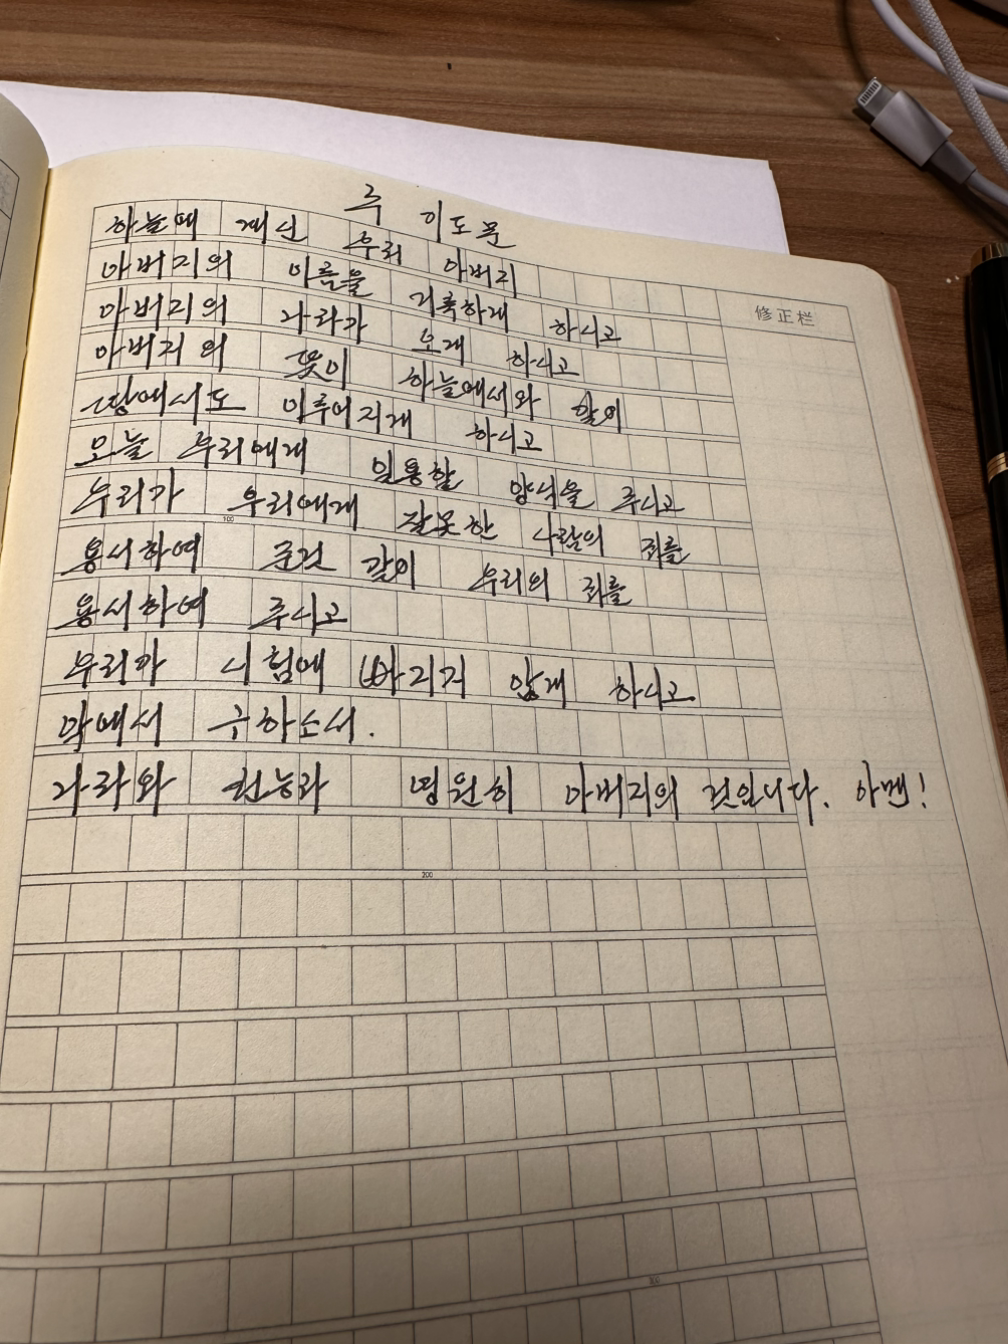 주 기도문
하늘에 계신 우리 아버지
아버지의 이름을 거룩하게 하시고
修正栏
아버지의 나라가 오게 하시고
아버지의 뜻이 하늘에서와 같이
땅에서도 이루어지게 하시고
오늘 우리에게 일용할 양식을 주시고
우리가 우리에게 잘못한 사람의 죄를
100
용서하여 준것 같이 우리의 죄를
용서하여 주시고
우리가 시험에 빠지지 않게 하시고
악에서 구하소서.
나라와 권능과 영원히 아버지의 것입니다. 아멘!
200